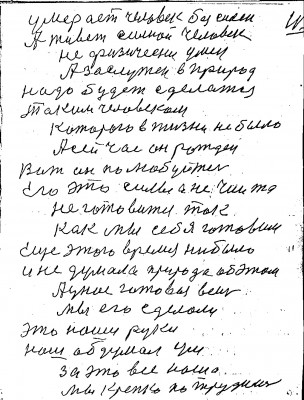 умерает человек без силы
А живет силной человек
не физически умеи
А заслужен в природ
надо будет сделатся
Таким человеком
Которого в жизни небыло
А сейчас он рожден
Вот он полюбуйтес
Его это силы а не чи
не готовити так
Как мы себя готовим
Еще этого время нибыло
и не думала природа об этом
А готовая вещ
мы его сделали
Это наши руки
наш обдумал ум
За это все наше
мы крепко потрудилис